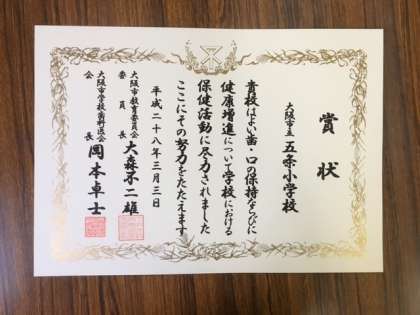 賞状
大阪市立 五条小学校
貴校はよい歯・口の保持ならびに
健康増進について学校における
保健活動に尽力されました
ここにその努力をたたえます
平成二十八年三月三日
大阪市教育委員会
委員長 大森不二雄
大阪市学校歯科医会
会長 岡本卓士